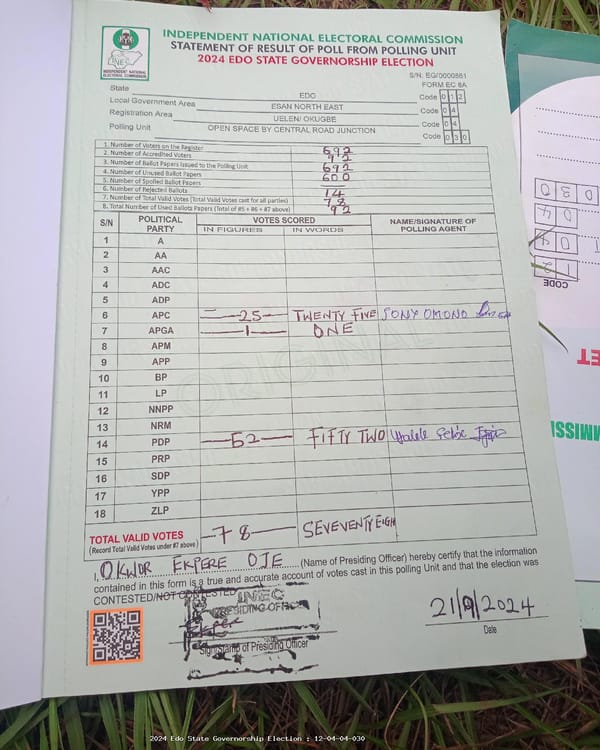 INDEPENDENT NATIONAL ELECTORAL COMMISSION
STATEMENT OF RESULT OF POLL FROM POLLING UNIT
2024 EDO STATE GOVERNORSHIP ELECTION
INEC
INDEPENDENT NATIONAL
ELECTORAL COMMISSION
S/N: EG/0000861
FORM EC 8A
State EDO Code 0 1 2
Local Government Area ESAN NORTH EAST Code 0 4
Registration Area UELEN/ OKUGBE Code 0 4
Polling Unit OPEN SPACE BY CENTRAL ROAD JUNCTION Code 0 3 0
1. Number of Voters on the Register 692
2. Number of Accredited Voters 92
3. Number of Ballot Papers Issued to the Polling Unit 692
4. Number of Unused Ballot Papers 600
5. Number of Spoiled Ballot Papers —
6. Number of Rejected Ballots 14
7. Number of Total Valid Votes (Total Valid Votes cast for all parties) 78
8. Total Number of Used Ballots Papers (Total of #5 + #6 + #7 above) 92
S/N POLITICAL PARTY VOTES SCORED NAME/SIGNATURE OF POLLING AGENT
IN FIGURES IN WORDS
1 A
2 AA
3 AAC
4 ADC
5 ADP
6 APC 25 TWENTY FIVE SONY OMONO
7 APGA 1 ONE
8 APM
9 APP
10 BP
11 LP
12 NNPP
13 NRM
14 PDP 52 FIFTY TWO
15 PRP
16 SDP
17 YPP
18 ZLP
ORIGINAL
TOTAL VALID VOTES 78 SEVEVENTY EIGH
(Record Total Valid Votes under #7 above)
I, OKWOR EKPERE OJE (Name of Presiding Officer) hereby certify that the information
contained in this form is a true and accurate account of votes cast in this polling Unit and that the election was
CONTESTED/NOT CONTESTED
INEC
PRESIDING OFFICER
Sign/Stamp of Presiding Officer
21/9/2024
Date
CODE
2024 Edo State Governorship Election : 12-04-04-030